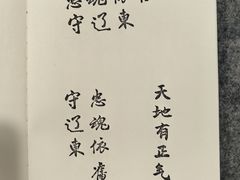 忠魂依
守辽東
天地有正气
忠魂依舊
守辽東